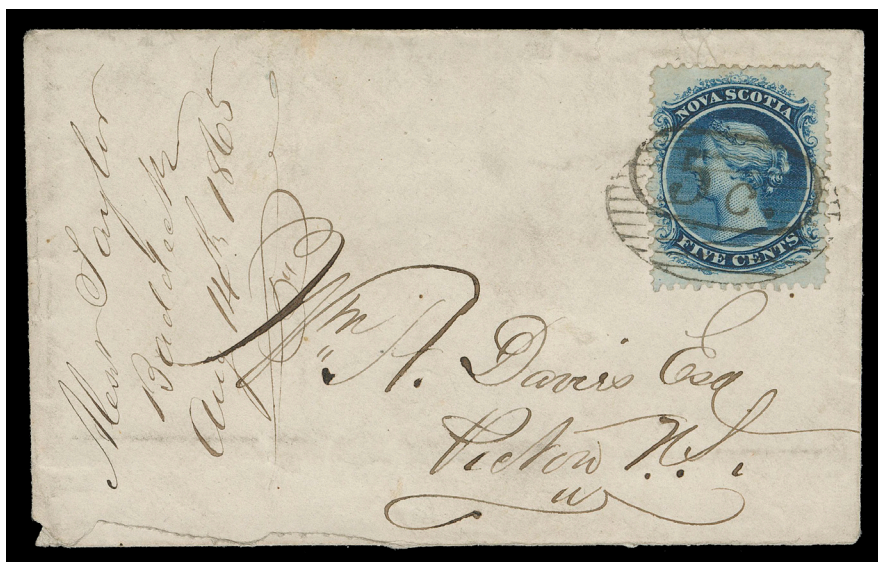 Alexr Taylor
Baddeck
Aug 14th 1865
NOVA SCOTIA
5 c.
FIVE CENTS
Wm H. Davies Esq
Pictou N.S.